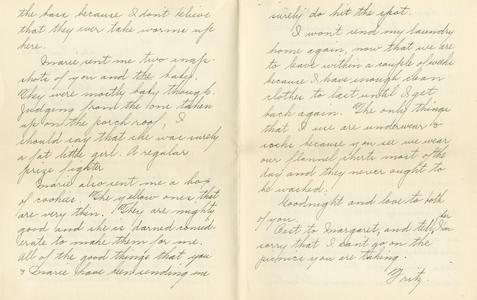 the bara because I don't believe
that they ever take worms up
here.
Marie sent me two snap-
shots of you and the baby.
They were mostly baby though.
Judging from the one taken
up on the porch roof, I
should say that she was surely
a fat little girl. A regular
prize fighter
Marie also sent me a box
of cookies. The yellow ones that
are very thin. They are mighty
good and she is darned consid-
erate to make them for me.
All of the good things that you
& Marie have been sending me
surely do hit the spot.
I won't send my laundry
home again, now that we are
to leave within a couple of weeks
because I have enough clean
clothes to last until I get
back again. The only things
that I use are underwear &
socks because you see we wear
our flannel shirts most of the
day and they never ought to
be washed!
Goodnight and love to both
of you.
Best to Margaret, and tell her I'm
sorry that I can't go on the
picnics you are taking.
Fritz